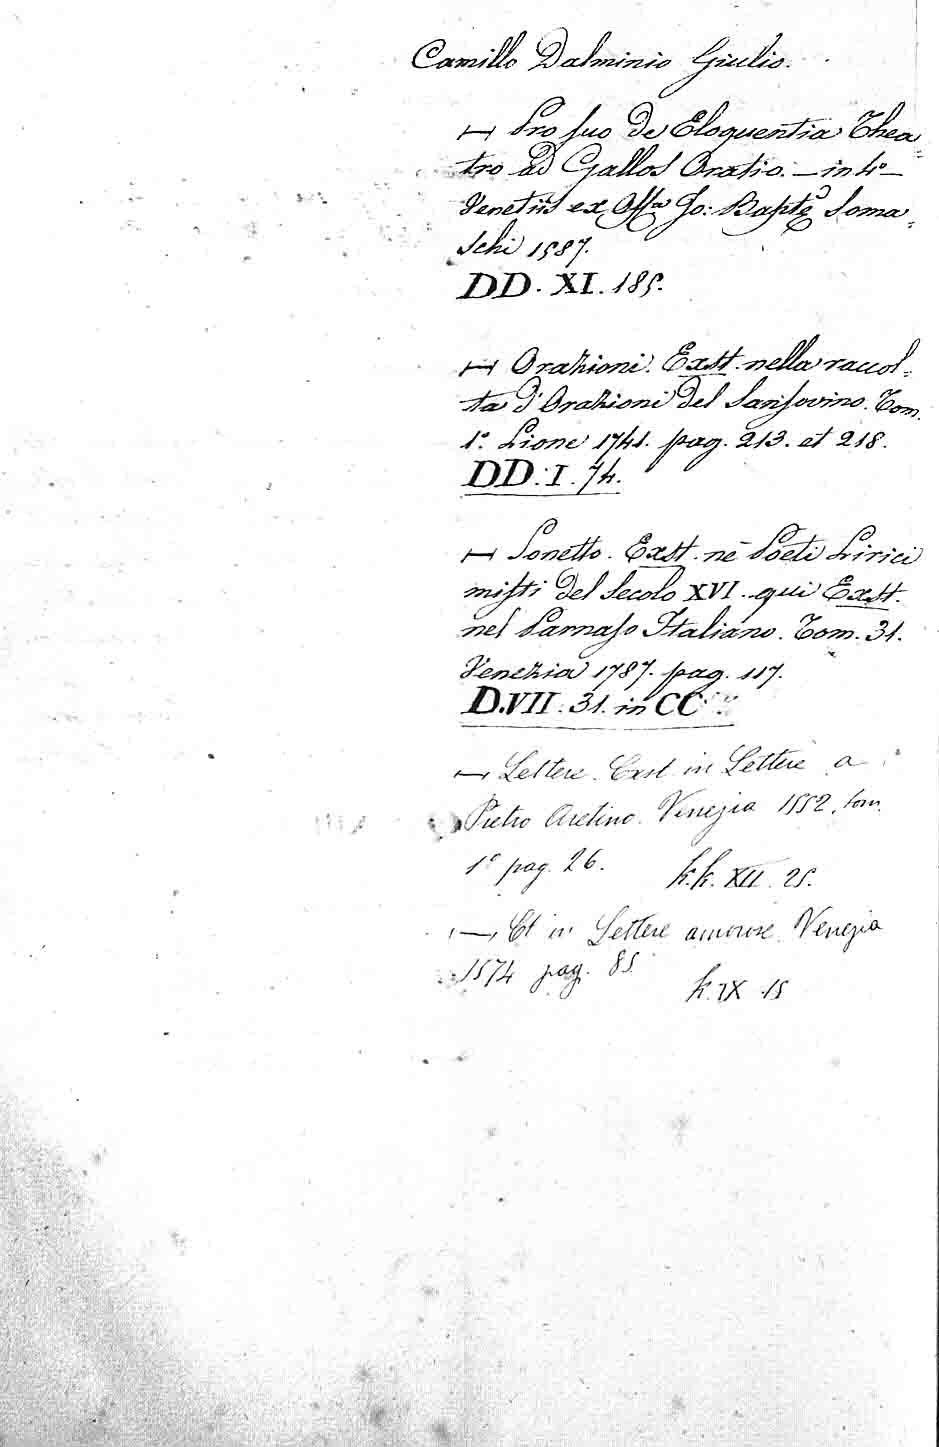 Camillo Dalminio Giulio.
— Pro suo de Eloquentia Thea=
tro ad Gallos Oratio. — in 4º —
Venetiis ex Offna Jo: Baptę Soma=
schi 1587.
DD. XI. 185.
— Orazioni. Exst. nella raccol=
ta d'Orazioni del Sansovino. Tom.
1º. Lione 1741. pag. 213. et 218.
DD. I. 74.
— Sonetto. Exst. nè Poeti Lirici
misti del Secolo XVI. qui Exst.
nel Parnaso Italiano. Tom. 31.
Venezia 1787. pag. 117.
D. VII. 31. in CC
— Lettere. Exst in Lettere a
Pietro Aretino. Venezia 1552. tom.
1º pag. 26. k.k. XII. 25.
— Et in Lettere amorose. Venezia
1574 pag. 85. k. IX. 15